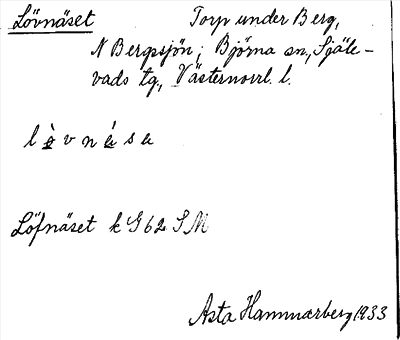 Lövnäset Torp under Berg,
N Bergsjön; Björna sn., Själe-
vads tg., Västernorrl. l.
l ò v n á s e
Löfnäset k G 62 SM
Asta Hammarberg 1933